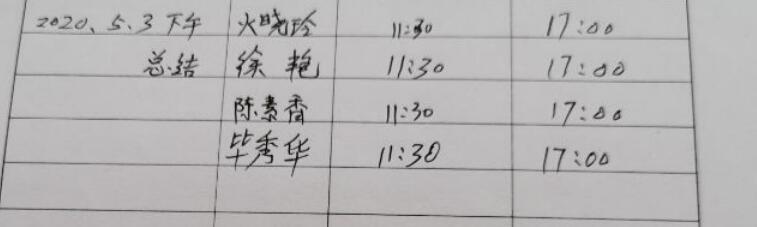 2020.5.3下午 火晓玲 11:30 17:00
总结 徐艳 11:30 17:00
陈素香 11:30 17:00
毕秀华 11:30 17:00